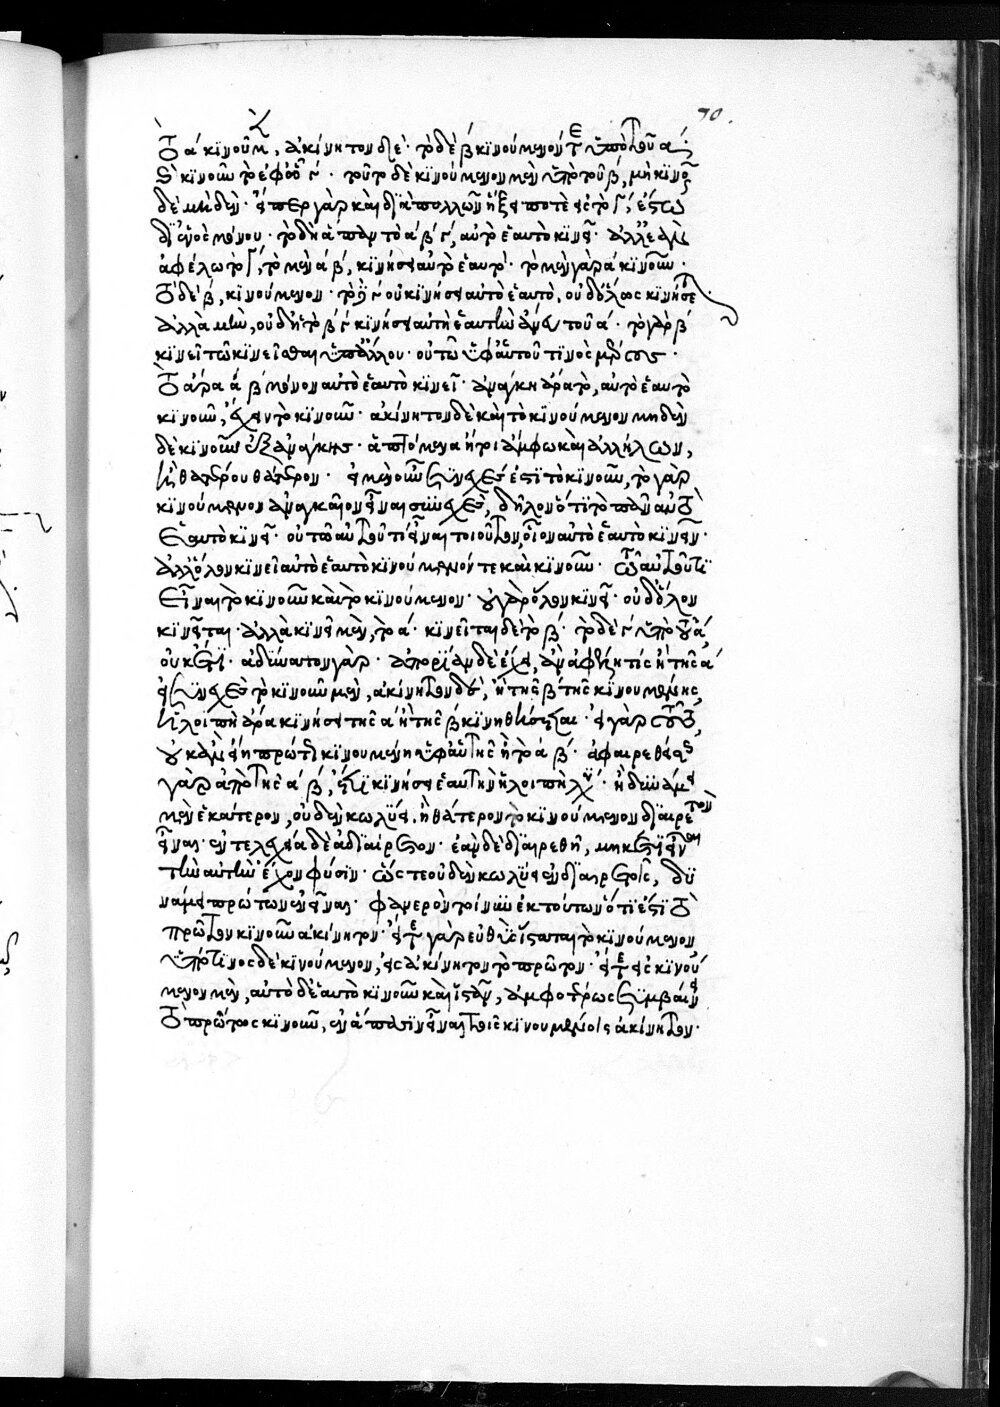 τὸ ά κινοῦν, ἀκίνητον δέ· τὸ δὲ β κινούμενόν τε ὑπὸ τοῦ ά,
καὶ κινοῦν τὸ ἐφ' ᾧ γ· τοῦτο δὲ κινούμενον μὲν ὑπὸ τοῦ β, μὴ κινοῦν
δὲ μηδέν· εἴπερ γὰρ καὶ διὰ πολλῶν ἥξει ποτὲ εἰς τὸ γ, ἔστω
δι' ἑνὸς μόνου· τὸ δὴ ἅπαν τὸ ά β γ, αὐτὸ ἑαυτὸ κινεῖ· ἀλλ' ἐὰν
ἀφέλω τὸ γ, τὸ μὲν ά β, κινήσει αὐτὸ ἑαυτό· τὸ μὲν γὰρ ά κινοῦν·
τὸ δὲ β, κινούμενον· τὸ δὲ γ οὐ κινήσει αὐτὸ ἑαυτό, οὐδ' ὅλως κινήσεται
ἀλλὰ μὴν, οὐδ' ἡ τὸ β γ κινήσει αὐτὴ ἑαυτὴν ἄνευ τοῦ ά· τὸ γὰρ β
κινεῖ τῷ κινεῖσθαι ὑπ' ἄλλου· οὐ τῷ ὑφ' αὑτοῦ τινὸς μέρους·
τὸ ἄρα ά β μόνον αὐτὸ ἑαυτὸ κινεῖ· ἀνάγκη ἄρα τὸ, αὐτὸ ἑαυτὸ
κινοῦν, ἔχειν τὸ κινοῦν· ἀκίνητον δὲ καὶ τὸ κινούμενον μηδὲν
δὲ κινοῦν ἐξ ἀνάγκης· ἁπτόμενα ἤτοι ἄμφω καὶ ἀλλήλων,
ἢ θατέρου θάτερον· εἰ μὲν οὖν συνεχές ἐστι τὸ κινοῦν, τὸ γὰρ
κινούμενον ἀναγκαῖον εἶναι συνεχές, δῆλον ὅτι τὸ πᾶν αὐτὸ
ἑαυτὸ κινεῖ· οὐ τῷ αὐτοῦ τι εἶναι τοιοῦτον, οἷον αὐτὸ ἑαυτὸ κινεῖν·
ἀλλ' ὅλον κινεῖ αὐτὸ ἑαυτὸ κινούμενόν τε καὶ κινοῦν· τῷ αὐτοῦ τι
εἶναι τὸ κινοῦν καὶ τὸ κινούμενον· οὐ γὰρ ὅλον κινεῖ· οὐδ' ὅλον
κινεῖται· ἀλλὰ κινεῖ μὲν, τὸ ά· κινεῖται δὲ τὸ β· τὸ δὲ γ ὑπὸ τοῦ ά,
οὐκέτι· ἀδύνατον γάρ· ἀπορίαν δὲ ἔχει, ἂν ἀφέλῃ τις ἢ τῆς ά
εἰ συνεχὲς τὸ κινοῦν μὲν, ἀκίνητον δὲ, ἢ τῆς β τῆς κινουμένης,
ἡ λοιπὴ ἄρα κινήσει τῆς ά ἢ τῆς β κινηθήσεται· εἰ γὰρ τοῦτο,
οὐκ ἂν εἴη πρώτη κινουμένη ὑφ' αὑτῆς ἡ τὸ ά β· ἀφαιρεθείσης
γὰρ ἀπὸ τῆς ά β, ἔτι κινήσει ἑαυτὴν ἡ λοιπὴ· ἢ δυνάμει
μὲν ἑκάτερον, οὐδὲν κωλύει. ἢ θάτερον τὸ κινούμενον διαιρετὸν
εἶναι· ἐντελεχείᾳ δὲ ἀδιαίρετον· ἐὰν δὲ διαιρεθῇ, μηκέτι εἶναι
τὴν αὐτὴν ἔχον φύσιν· ὥστε οὐδὲν κωλύει ἐν διαιρετοῖς, δυ
νάμει πρώτων ἐνεῖναι· φανερὸν τοίνυν ἐκ τούτων ὅτι ἔστι τὸ
πρῶτον κινοῦν ἀκίνητον· εἴτε γὰρ εὐθὺς ἵσταται τὸ κινούμενον
ὑπό τινος δὲ κινούμενον, εἰς ἀκίνητον τὸ πρῶτον· εἴτε εἰς κινού
μενον μὲν, αὐτὸ δὲ ἑαυτὸ κινοῦν καὶ ἱστὰν, ἀμφοτέρως συμβαίνει
τὸ πρώτως κινοῦν, ἐν ἅπασιν εἶναι τοῖς κινουμένοις ἀκίνητον·
70.